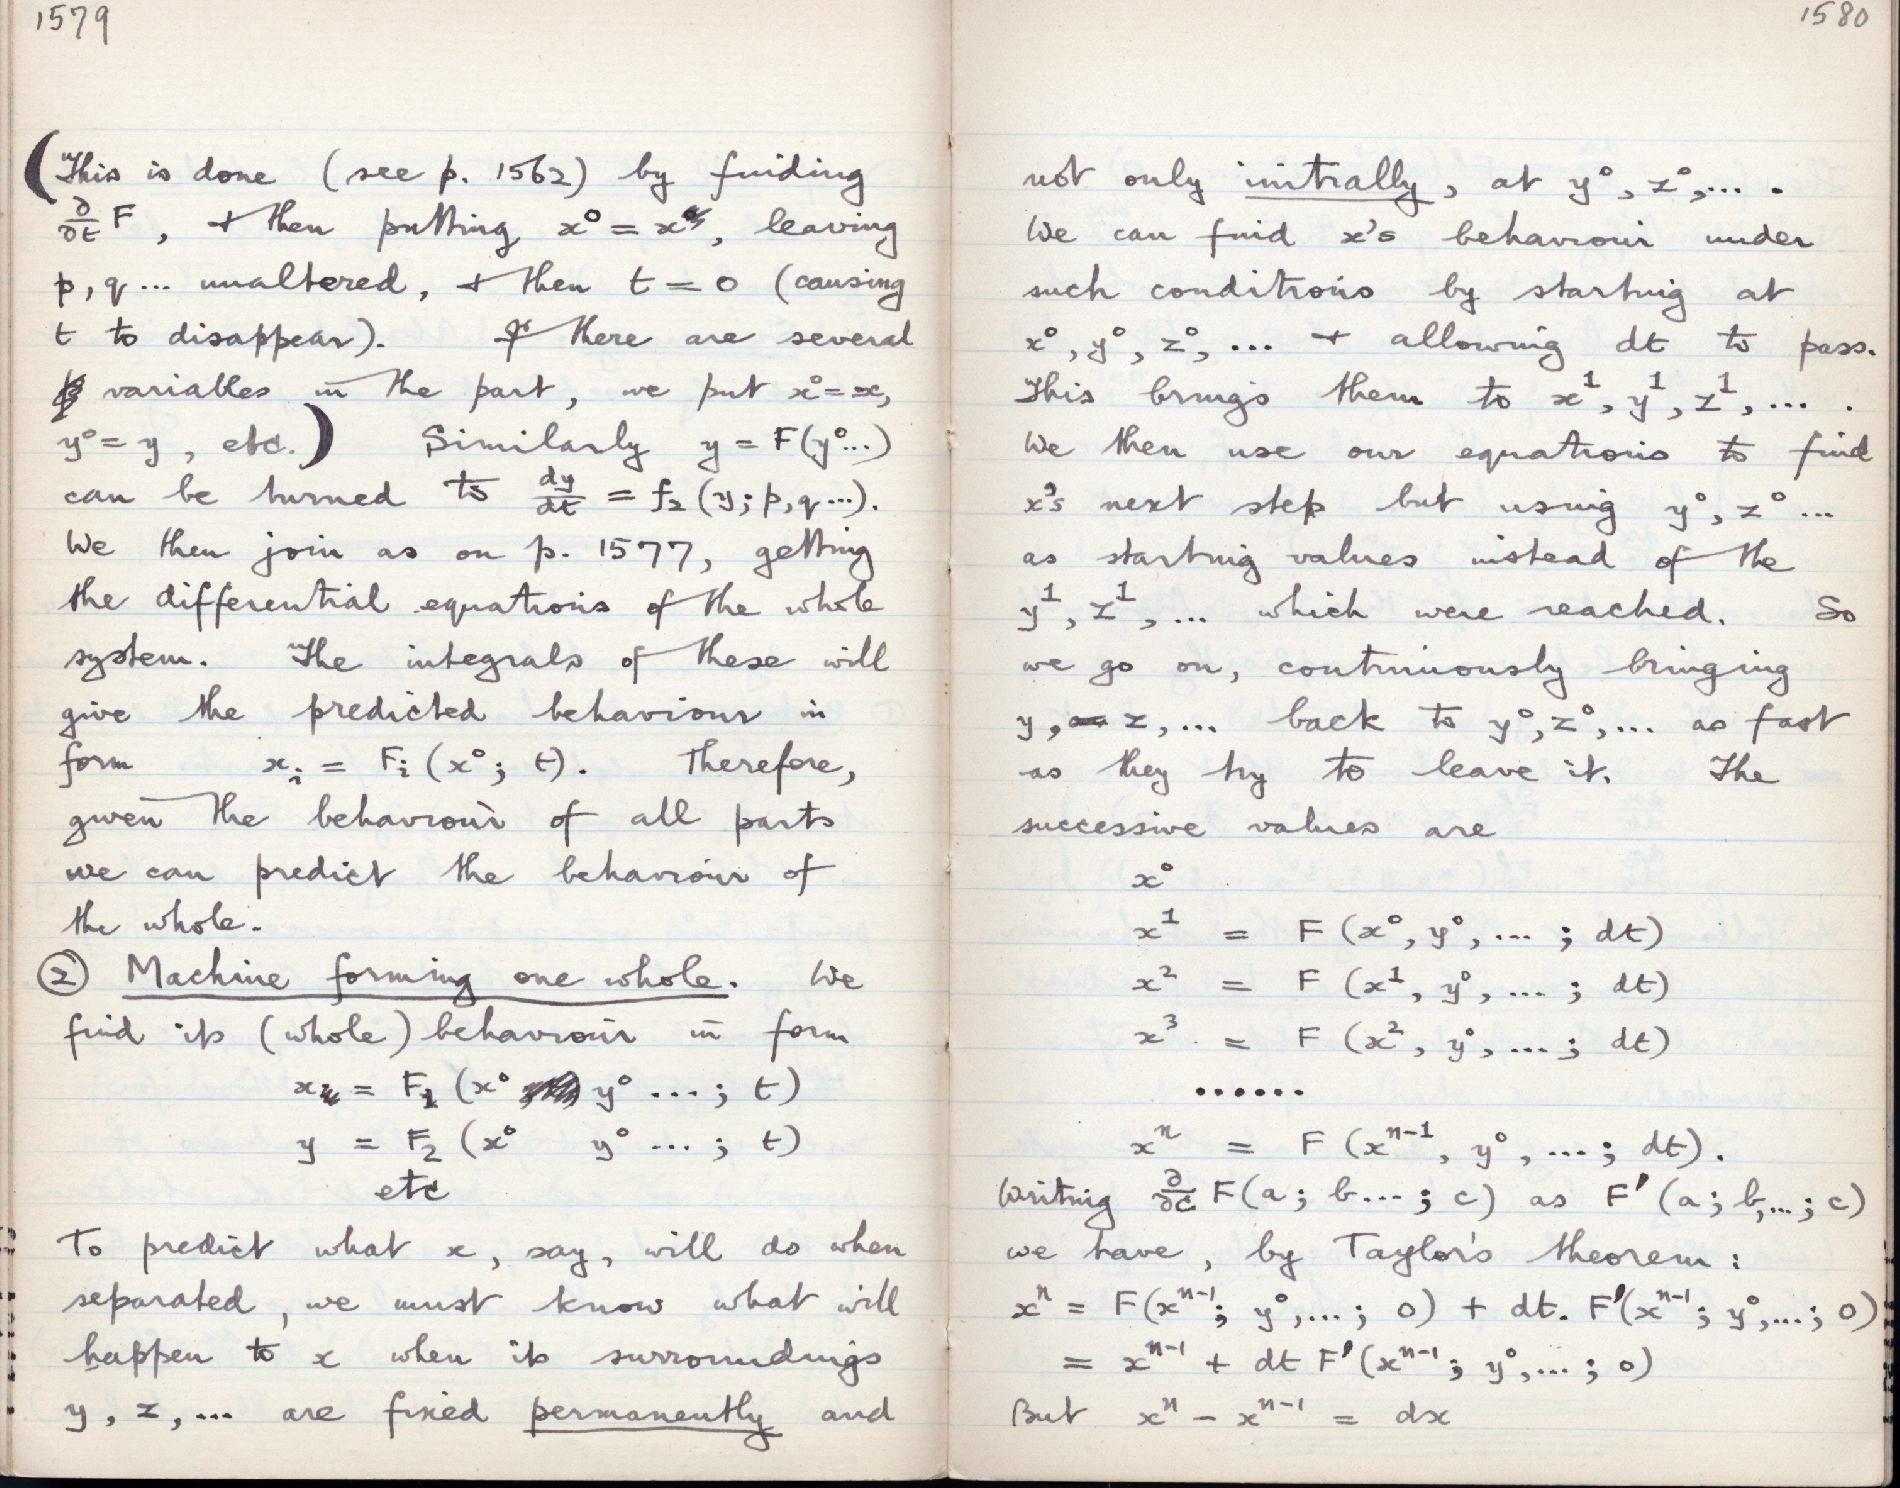 1579
(This is done (see p. 1562) by finding
∂/∂t F, + then putting x⁰ = x, leaving
p, q ... unaltered, + then t = 0 (causing
t to disappear). If there are several
variables in the part, we put x⁰ = x,
y⁰ = y, etc.) Similarly y = F(y⁰...)
can be turned to dy/dt = f₂(y; p, q ...).
We then join as on p. 1577, getting
the differential equations of the whole
system. The integrals of these will
give the predicted behaviour in
form xᵢ = Fᵢ(x⁰; t). Therefore,
given the behaviour of all parts
we can predict the behaviour of
the whole.
② Machine forming one whole. We
find its (whole) behaviour in form
x = F₁ (x⁰ y⁰ ...; t)
y = F₂ (x⁰ y⁰ ...; t)
etc
To predict what x, say, will do when
separated, we must know what will
happen to x when its surroundings
y, z, ... are fixed permanently and
1580
not only initially, at y⁰, z⁰, ... .
We can find x's behaviour under
such conditions by starting at
x⁰, y⁰, z⁰, ... + allowing dt to pass.
This brings them to x¹, y¹, z¹, ... .
We then use our equations to find
x's next step but using y⁰, z⁰ ...
as starting values instead of the
y¹, z¹, ... which were reached. So
we go on, continuously bringing
y, z, ... back to y⁰, z⁰, ... as fast
as they try to leave it. The
successive values are
x⁰
x¹ = F (x⁰, y⁰, ... ; dt)
x² = F (x¹, y⁰, ... ; dt)
x³ = F (x², y⁰, ... ; dt)
......
xⁿ = F (xⁿ⁻¹, y⁰, ... ; dt).
Writing ∂/∂c F(a; b...; c) as F′(a; b, ...; c)
we have, by Taylor's theorem:
xⁿ = F(xⁿ⁻¹; y⁰, ...; 0) + dt. F′(xⁿ⁻¹; y⁰, ...; 0)
= xⁿ⁻¹ + dt F′(xⁿ⁻¹; y⁰, ...; 0)
But xⁿ − xⁿ⁻¹ = dx